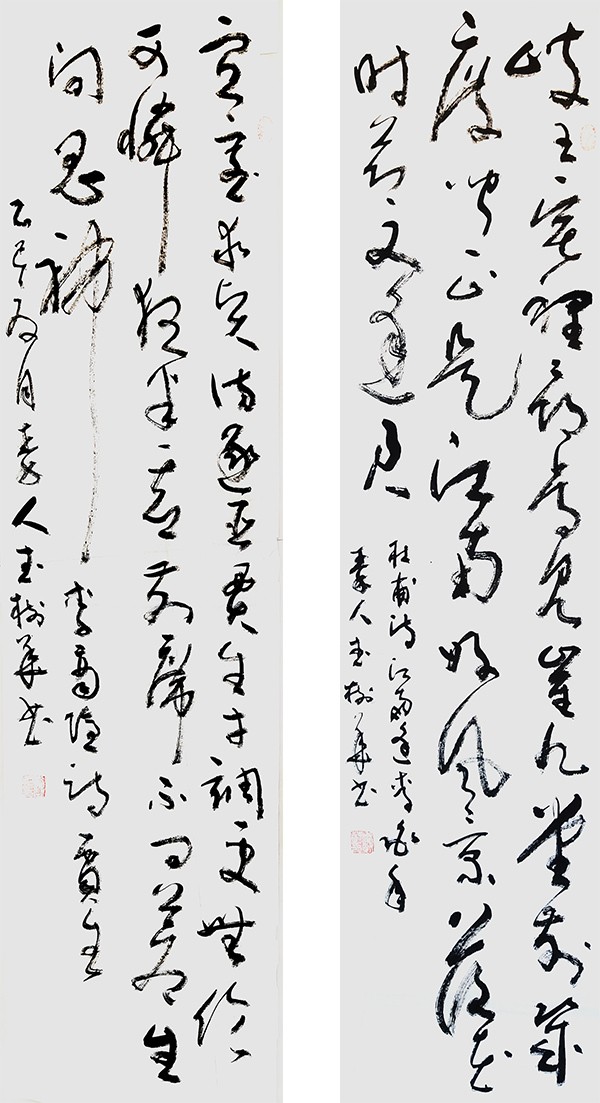 岐王宅裡寻常见崔九堂前幾
度闻正是江南好风景落花
时节又逢君
杜甫诗江南逢李龟年
秦人树华书
宣室求贤访逐臣贾生才調更無伦
可憐夜半虚前席不问苍生
问鬼神 李商隐诗 贾生
乙巳夏月秦人树华书